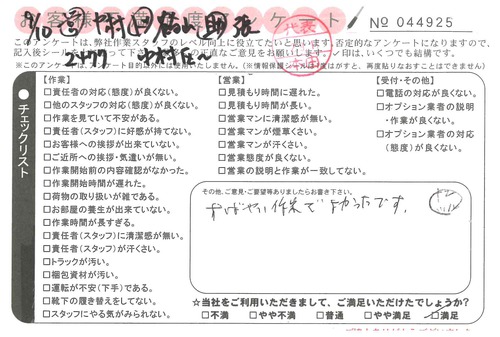 お客様満足度アンケート
№ 044925
このアンケートは、弊社作業スタッフのレベル向上に役立てたいと思います。否定的なアンケートになりますので、
記入後シールを
の正直なご意見をお願いします。
印は、いくつでも結構です。
※このアンケートは、アンケート目的以外には使用いたしません。(※情報保護シールは
はがすと、再度貼りなおすことはできません)
チェックリスト
【作業】
□責任者の対応(態度)が良くない。
□他のスタッフの対応(態度)が良くない。
□作業を見ていて不安がある。
□責任者(スタッフ)に好感が持てない。
□お客様への挨拶が出来ていない。
□ご近所への挨拶・気遣いが無い。
□作業開始前の内容確認がなかった。
□作業開始時間が遅れた。
□荷物の取り扱いが雑である。
□お部屋の養生が出来ていない。
□作業時間が長すぎる。
□責任者(スタッフ)に清潔感が無い。
□責任者(スタッフ)が汗くさい。
□トラックが汚い。
□梱包資材が汚い。
□運転が不安(下手)である。
□靴下の履き替えをしてない。
□スタッフにやる気がみられない。
【営業】
□見積もり時間に遅れた。
□見積もり時間が長い。
□営業マンに清潔感が無い。
□営業マンが煙草くさい。
□営業マンが汗くさい。
□営業態度が良くない。
□営業の説明と作業が一致してない。
【受付・その他】
□電話の対応が良くない。
□オプション業者の説明
・作業が良くない。
□オプション業者の対応
(態度)が良くない。
その他、ご意見・ご要望等ありましたらお書き下さい。
すばやい作業でよかったです。
☆当社をご利用いただきまして、ご満足いただけたでしょうか?
□不満 □やや不満 □普通 □やや満足 □満足